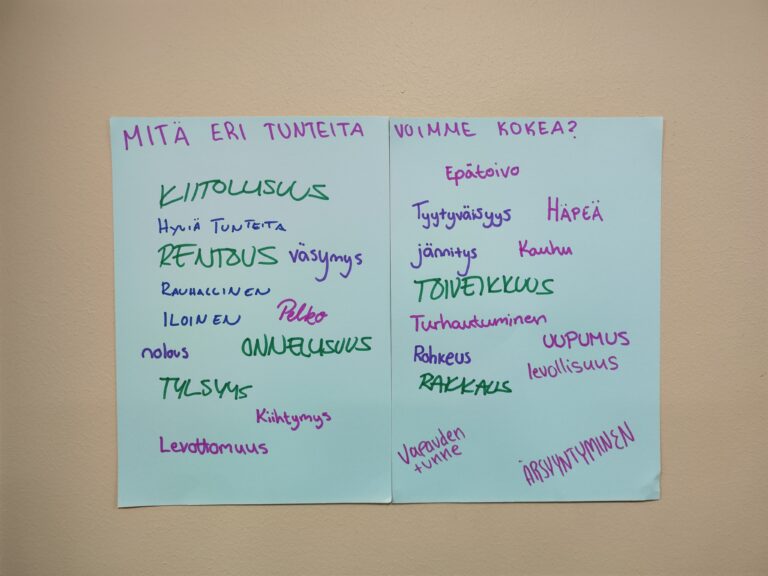 MITÄ ERI TUNTEITA VOIMME KOKEA?
KIITOLLISUUS
HYVIÄ TUNTEITA
RENTOUS väsymys
RAUHALLINEN
ILOINEN Pelko
nolous ONNELLISUUS
TYLSYYS
Kiihtymys
Levottomuus
Epätoivo
Tyytyväisyys HÄPEÄ
jännitys Kauhu
TOIVEIKKUUS
Turhautuminen
UUPUMUS
Rohkeus
levollisuus
RAKKAUS
Vapauden
tunne
ÄRSYYNTYMINEN